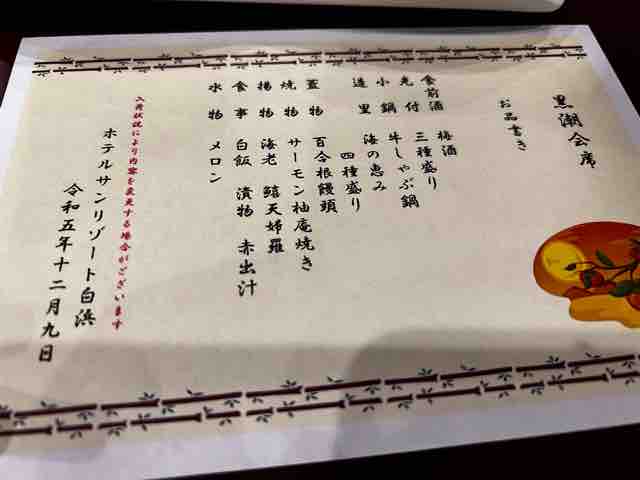 黒潮会席
お品書き
食前酒 梅酒
先付 三種盛り
小鍋 牛しゃぶ鍋
造里 海の恵み
四種盛り
蓋物 百合根饅頭
焼物 サーモン柚庵焼き
揚物 海老 鱚天婦羅
食事 白飯 漬物 赤出汁
水物 メロン
入荷状況により内容を変更する場合がございます
ホテルサンリゾート白浜
令和五年十二月九日